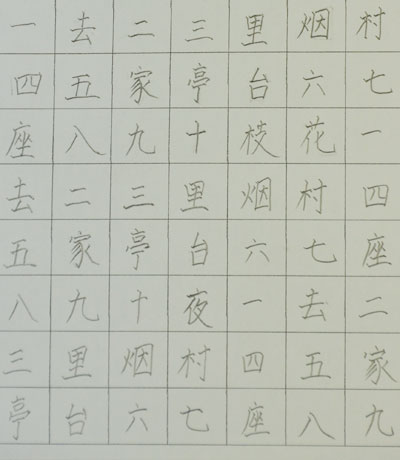 一去二三里烟村
四五家亭台六七
座八九十枝花一
去二三里烟村四
五家亭台六七座
八九十夜一去二
三里烟村四五家
亭台六七座八九